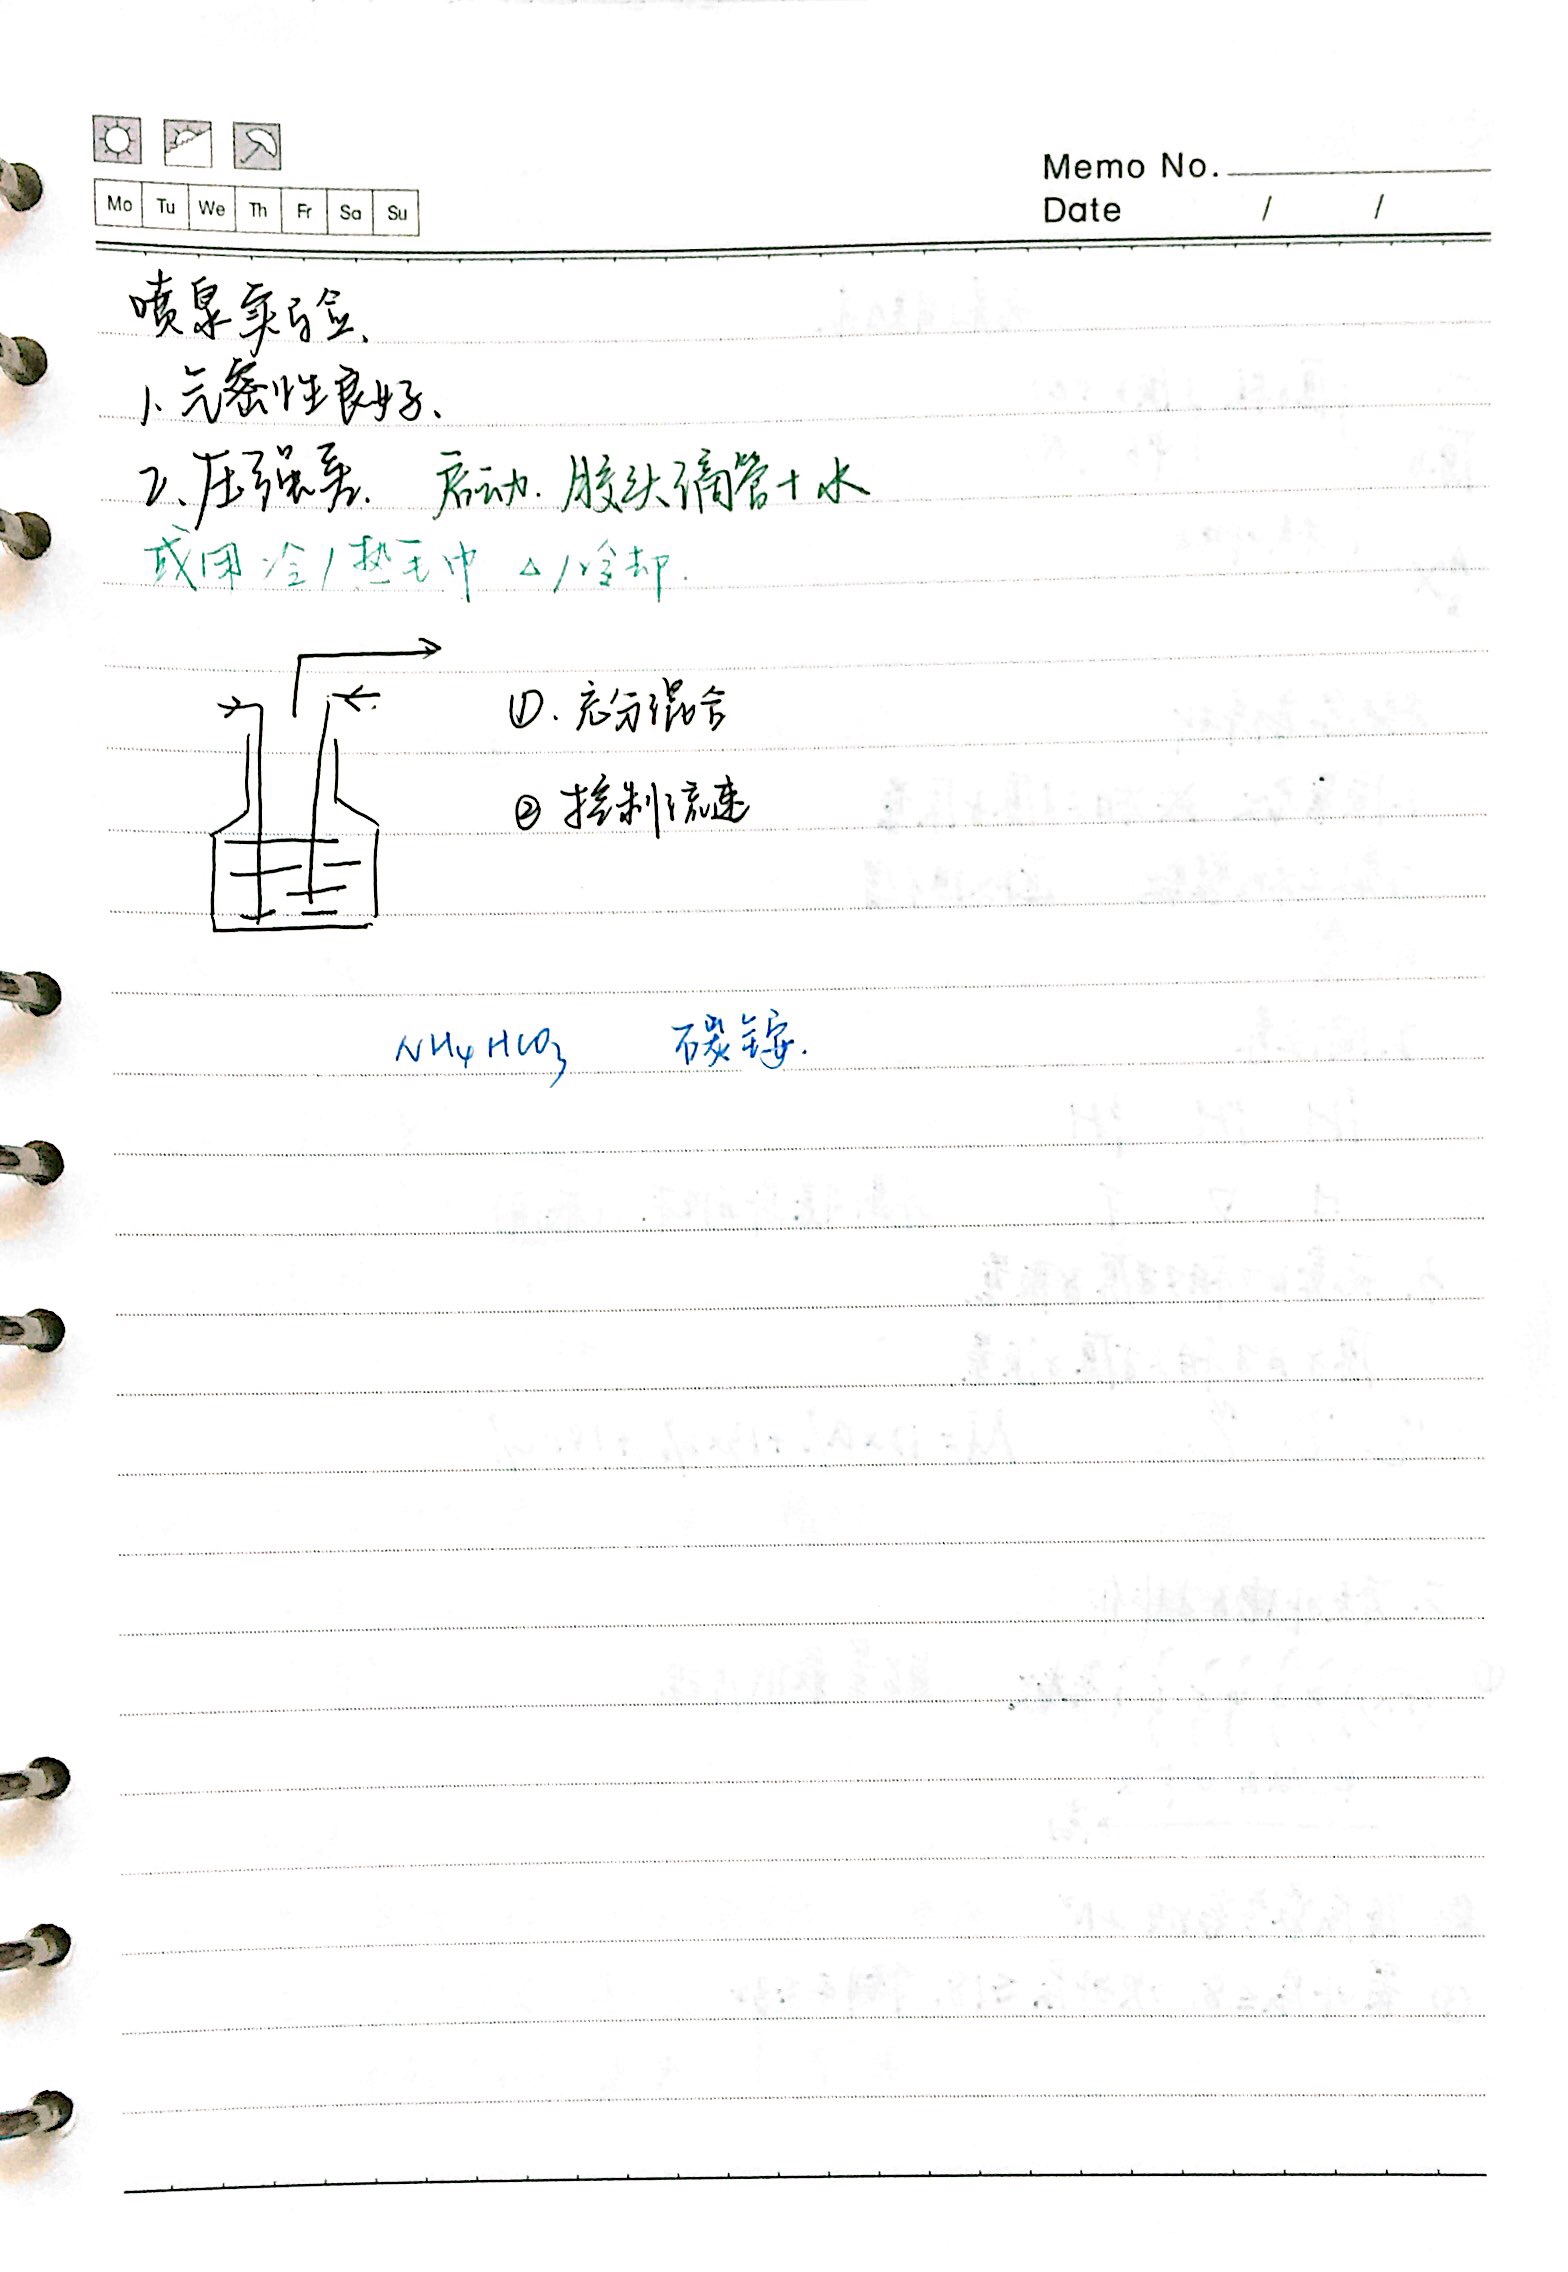 Memo No.
Mo Tu We Th Fr Sa Su
Date / /
喷泉实验、
1、气密性良好、
2、压强差. 启动. 胶头滴管+水
或用冷/热毛巾 △/冷却.
①. 充分混合
② 控制流速
NH4HCO3 碳铵.